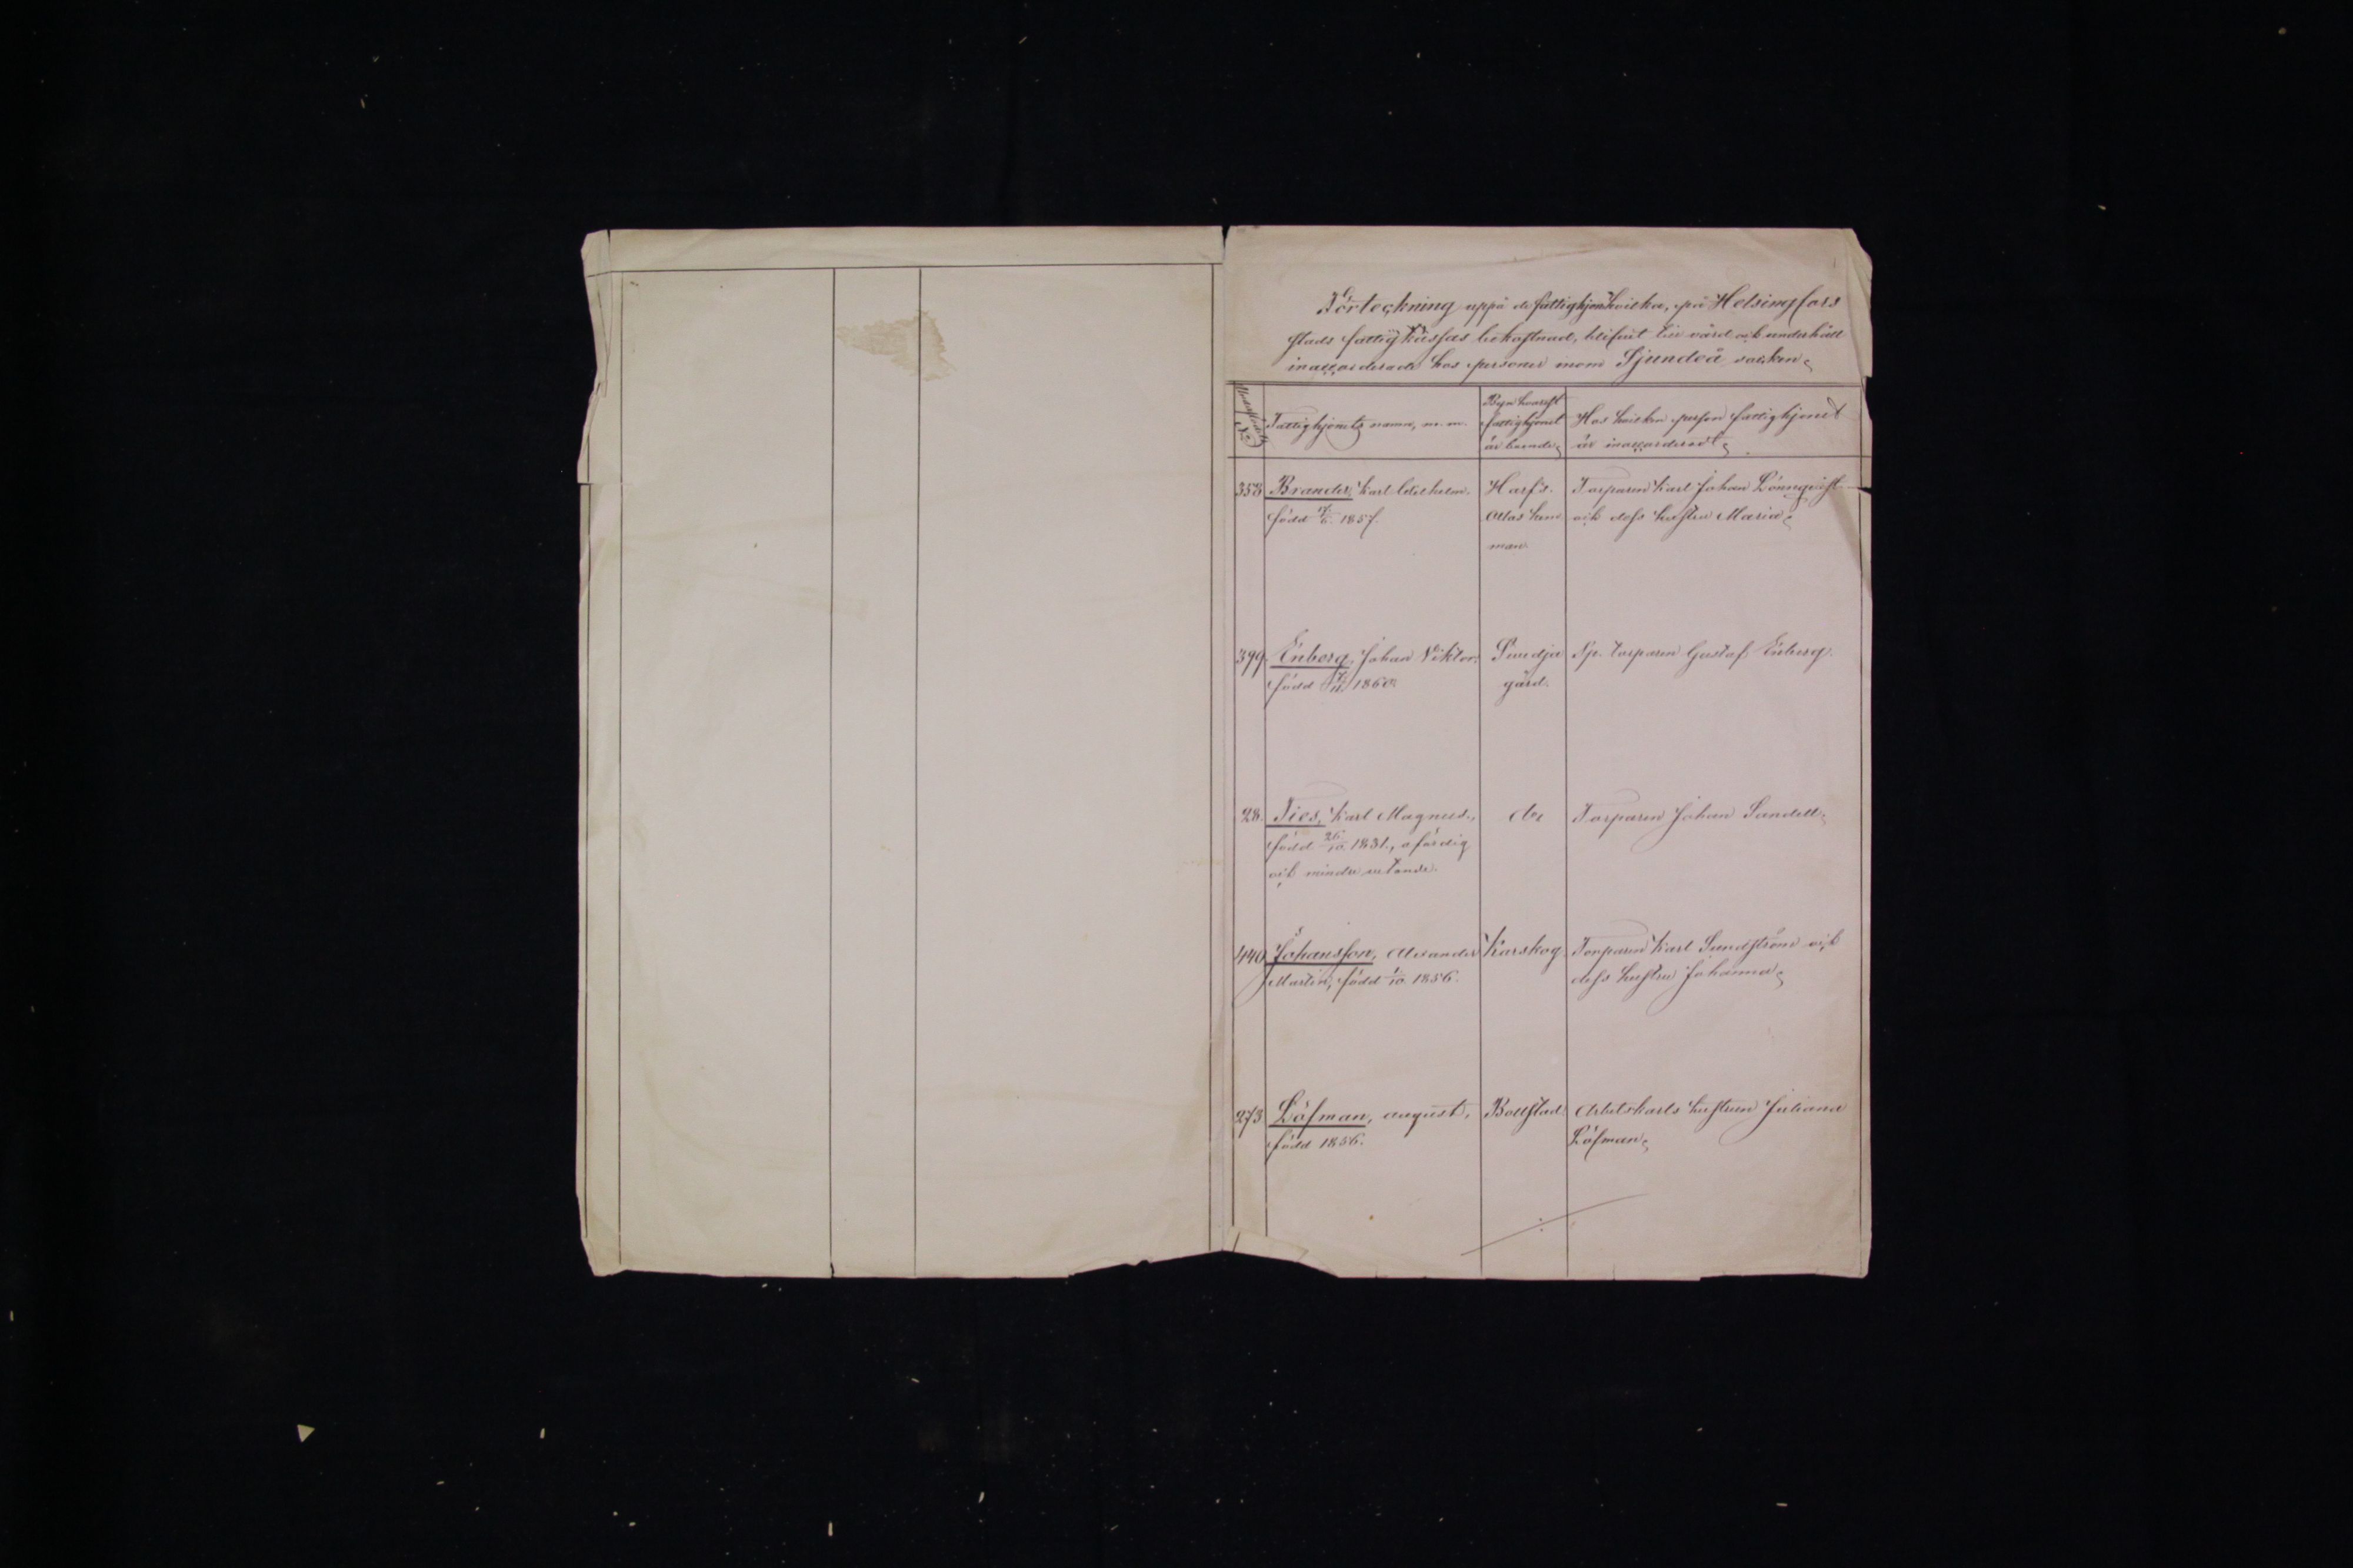 Förteckning uppå de fattighjon hvilka, på Helsingfors
stads fattigkassas bekostnad, blifvit till vård och underhåll
inaccorderade hos personer inom Sjundeå socken.
Fattighjonets namn, m.m.
Byn hvarest
fattighjonet
är boende.
Hos hvilken person fattighjonet
är inaccorderadt.
353 Brander, Karl Wilhelm. Harfs. Torparen Karl Johan Lönnqvist
född 17/5. 1857. och dess hustru Maria.
man.
399. Enberg, Johan Viktor, Smedje Sp. torparen Gustaf Enberg.
född 1860. gård.
28. Ties, Karl Magnus, d:o Torparen Johan Sundell.
född 26/10. 1831., ofärdig
och mindre vetande.
440 Johansson, Alexander Karskog. Torparen Karl Sundström och
Martin, född 1/10. 1856. dess hustru Johanna.
273 Löfman, August, Bollstad. Arbetskarls hustrun Juliana
född 1856. Löfman.